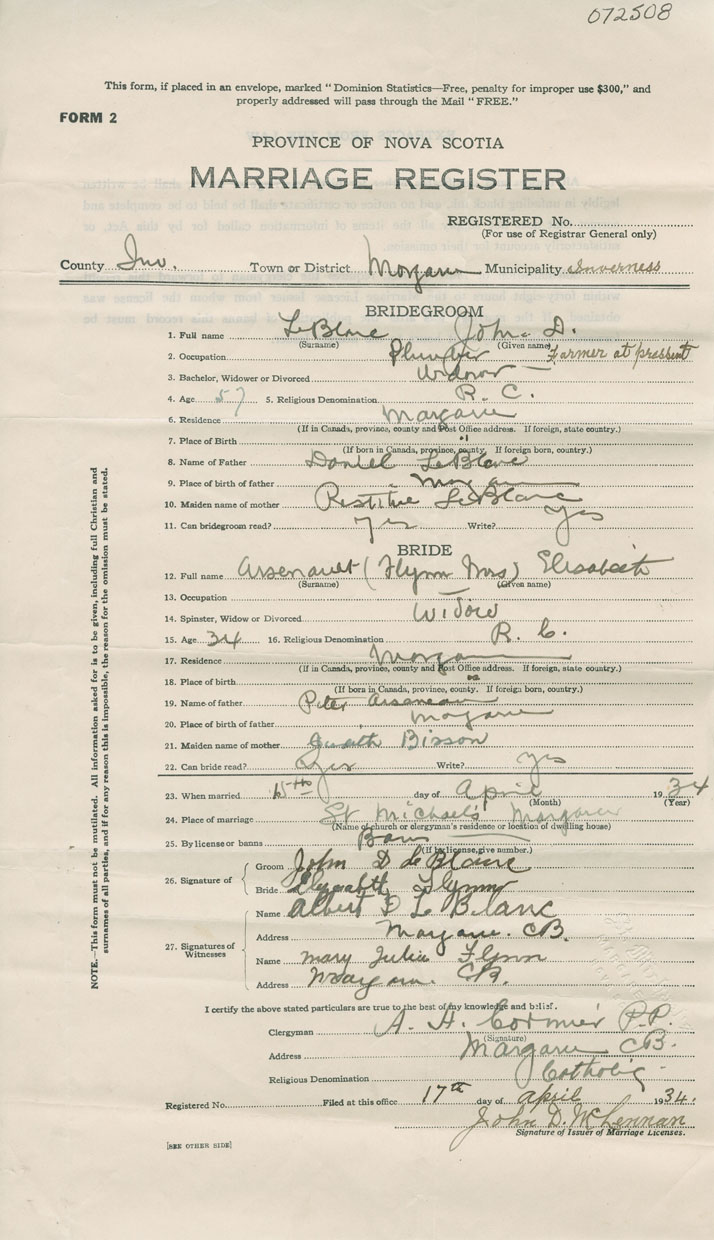 072508
This form, if placed in an envelope, marked "Dominion Statistics—Free, penalty for improper use $300," and
properly addressed will pass through the Mail "FREE."
FORM 2
PROVINCE OF NOVA SCOTIA
MARRIAGE REGISTER
REGISTERED No.
(For use of Registrar General only)
County Inv. Town or District Margaree Municipality Inverness
BRIDEGROOM
1. Full name LeBlanc John D.
(Surname) (Given name)
2. Occupation Plumber Farmer at pressent
3. Bachelor, Widower or Divorced Widower
4. Age 57 5. Religious Denomination R. C.
6. Residence Margaree
(If in Canada, province, county and Post Office address. If foreign, state country.)
7. Place of Birth "
(If born in Canada, province, county. If foreign born, country.)
8. Name of Father Daniel LeBlanc
9. Place of birth of father Margaree
10. Maiden name of mother LeBlanc
11. Can bridegroom read? Yes Write? Yes
BRIDE
12. Full name Arsenault (Flynn Mrs) Elisabeth
(Surname) (Given name)
13. Occupation —
14. Spinster, Widow or Divorced Widow
15. Age 34 16. Religious Denomination R. C.
17. Residence Margaree
(If in Canada, province, county and Post Office address. If foreign, state country.)
18. Place of birth "
(If born in Canada, province, county. If foreign born, country.)
19. Name of father Peter Arseneau
20. Place of birth of father Margaree
21. Maiden name of mother Judith Bisson
22. Can bride read? Yes Write? Yes
23. When married 15th day of April 1934
(Month) (Year)
24. Place of marriage St Michael's Margaree
(Name of church or clergyman's residence or location of dwelling house)
25. By license or banns Bans
(If by license, give number.)
26. Signature of
Groom John D LeBlanc
Bride Elyzabth Flynn
27. Signatures of Witnesses
Name Albert D LeBlanc
Address Margaree. C.B.
Name Mary Julia Flynn
Address Margaree. C.B.
I certify the above stated particulars are true to the best of my knowledge and belief.
Clergyman A. H. Cormier P.P.
(Signature)
Address Margaree C.B.
Religious Denomination Catholic
Registered No. Filed at this office 17th day of April 1934.
John D. McLennan
Signature of Issuer of Marriage Licenses.
[SEE OTHER SIDE]
NOTE.—This form must not be mutilated. All information asked for is to be given, including full Christian and
surnames of all parties, and if for any reason this is impossible, the reason for the omission must be stated.